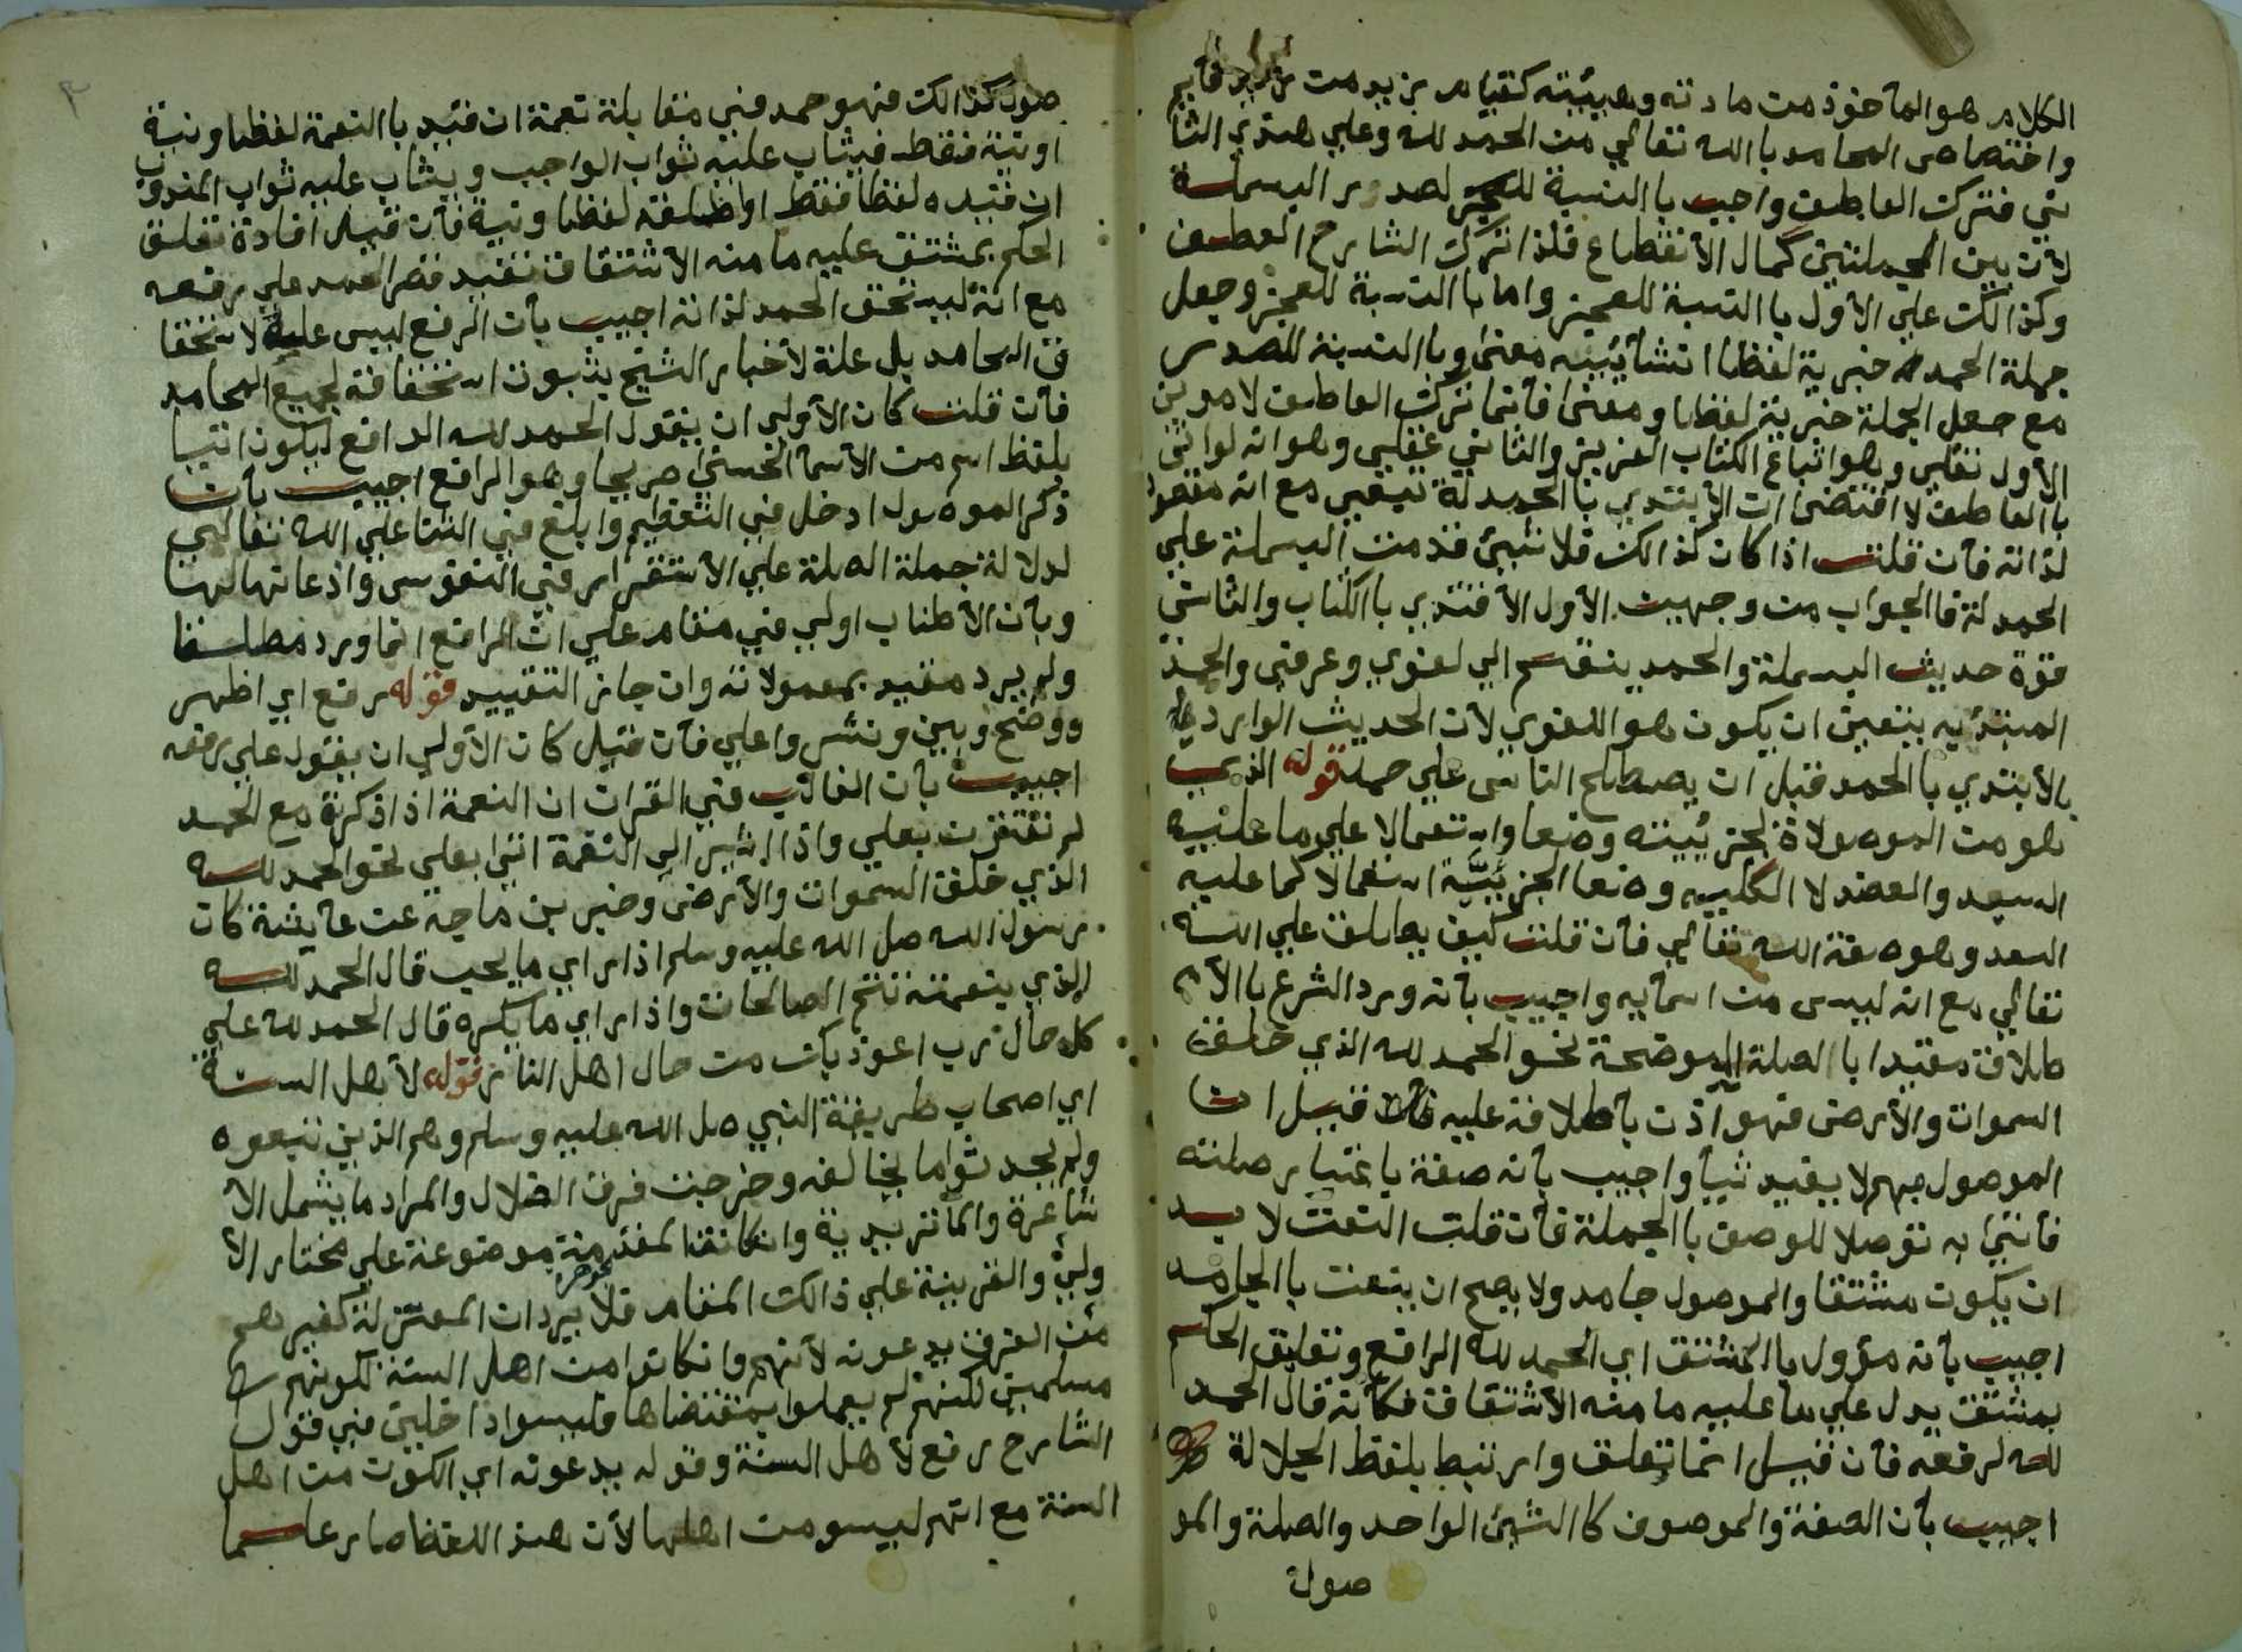 الكلام هو المأخوذ من مادته وهيئته كقيام زيد من زيد قايم
واختصاص المحامد باالله تعالي من الحمد لله وعلي هذي الثا
ني فترك العاطف واجب باالنسبة للعجز لصدور البسملة
لأن بين الجملتين كمال الأنقطاع فلذا ترك الشارح العطف
وكذالك علي الأول باالنسبة للعجز واما باالنسبة للعجز وجعل
جملة الحمد خبرية لفظا انشائيته معني وباالنسبة للصدر
مع جعل الجملة خبرية لفظا ومعني فأنما ترك العاطف لامرين
الأول نقلي وهو اتباع الكتاب العزيز والثاني عقلي وهو انه لو اتي
باالعاطف لا اقتضي ان الأبتدي باالحمدلة تبعي مع انه مقصود
لذاته فأن قلت اذا كان كذالك فلا شيئ قدمت البسملة علي
الحمدلة فاالجواب من وجهين الأول الأقتدي باالكتاب والثاني
قوة حديث البسملة والحمد ينقسم الي لغوي وعرفي والحمد
المبتدئ به يتعين ان يكون هو اللغوي لأن الحديث الوارد في
الأبتدي باالحمد قبل ان يصطلح الناس علي حمله قوله الذي
هو من الموصولاة الجزئيته وضعا واستعمالا علي ما عليه
السيد والعضد لا الكليه وضعا الجزئيّة استعمالا كما عليه
السعد وهو صفة الله تعالي فأن قلت كيف يطلق علي الله
تعالي مع انه ليس من اسمآيه واجيب بأنه ورد الشرع باالأ
طلاق مقيدا باالصلة الموضحة نحو الحمد لله الذي خلق
السموات والأرض فهو اذن بأطلاقه عليه فأن قيل ان
الموصول مبهم لا يفيد شيأ واجيب بأنه صفة باعتبار صلته
فأتي به توصلا للوصف باالجملة فأن قلت النعت لا بد
ان يكون مشتقا والموصول جامد ولا يصح ان ينعت باالجامد
اجيب بأنه مؤول باالمشتق اي الحمد لله الرافع وتعليق الحكم
بمشتق يدل علي ما عليه ما منه الأشتقاق فكأنه قال الحمد
لله لرفعه فأن قيل انما تعلق وارتبط بلفظ الجلالة
اجيب بأن الصفة والموصوف كاالشيئ الواحد والصلة والمو
صول
صول كذالك فهو حمد في مقابلة نعمة ان قيد باالنعمة لفظا ونية
او نية فقط فيثاب عليه ثواب الواجب ويثاب عليه ثواب المندوب
ان قيده لفظا فقط او اطلقه لفظا ونية فأن قيل افادة تعليق
الحكم بمشتق عليه ما منه الأشتقاق تفيد قصر الحمد علي رفعه
مع انه ليستحق الحمد لذاته اجيب بأن الرفع ليس علة لاستحقا
ق المحامد بل علة لأخبار الشيخ بثبوت استحقاقه لجميع المحامد
فأن قلت كان الأولي ان يقول الحمد لله الرافع ليكون اتيا
بلفظ اسم من الأسمآ الحسني صريحا وهو الرافع اجيب بأن
ذكر الموصول ادخل في التعظيم وابلغ في الثنا علي الله تعالي
لدلالة جملة الصلة علي الأستقرار في النفوس واذعانها لها
وبأن الأطناب اولي في مقام علي ان الرافع انما ورد مطلقا
ولم يرد مقيد بمعمولاته وان جاز التقييد قوله رفع اي اظهر
ووضح وبين ونشر واعلي فأن قيل كان الأولي ان يقول علي رفعه
اجيب بأن الغالب في القران ان النعمة اذا ذكرة مع الحمد
لم تقترن بعلي واذا اشير الي النقمة اتي بعلي نحو الحمد لله
الذي خلق السموات والأرض وخبر بن ماجة عن عايشة كان
رسول الله صل الله عليه وسلم اذا راي ما يحب قال الحمد لله
الذي بنعمته تتم الصالحات واذا راي ما يكره قال الحمد لله علي
كل حال رب اعوذ بك من حال اهل النار قوله لأهل السنة
اي اصحاب طريقة النبي صل الله عليه وسلم وهم الذين تبعوه
ولم يحدثوا ما يخالفه وخرجت فرق الضلال والمراد ما يشمل الأ
شاعرة والمآتريدية وانكانة المقدمة موضوعة علي مختار الأ
ولي والقرينة علي ذالك المقام فلا يرد ان المعتزلة كغيرهم
من الفرق يدعونه لأنهم وانكانوا من اهل السنة لكونهم
مسلمين لكنهم لم يعملوا بمقتضاها فليسوا داخلين في قول
الشارح رفع لأهل السنة وقوله يدعونه اي الكون من اهل
السنة مع انهم ليسو من اهلها لأن هذ اللفظ صار علما